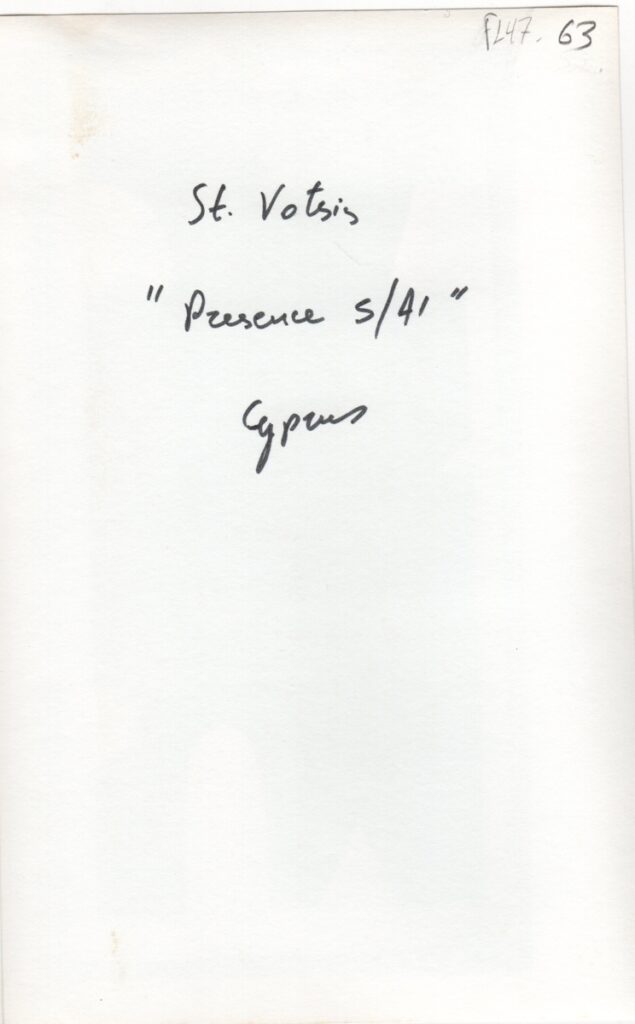 FL47. 63
St. Votsis
" Presence 5/A1 "
Cyprus